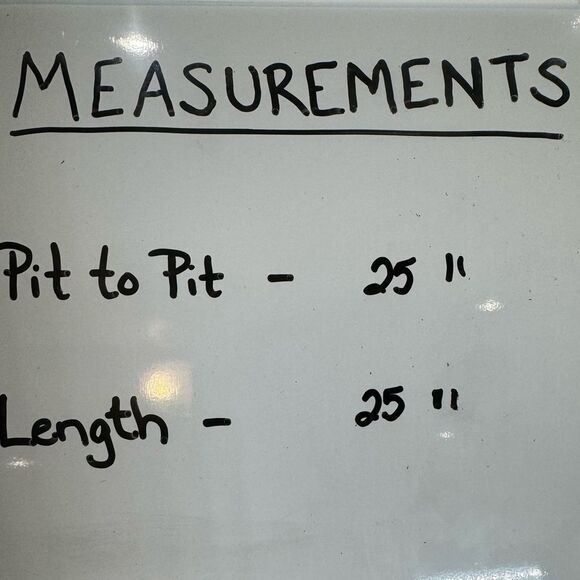 MEASUREMENTS
Pit to Pit - 25 "
Length - 25 "